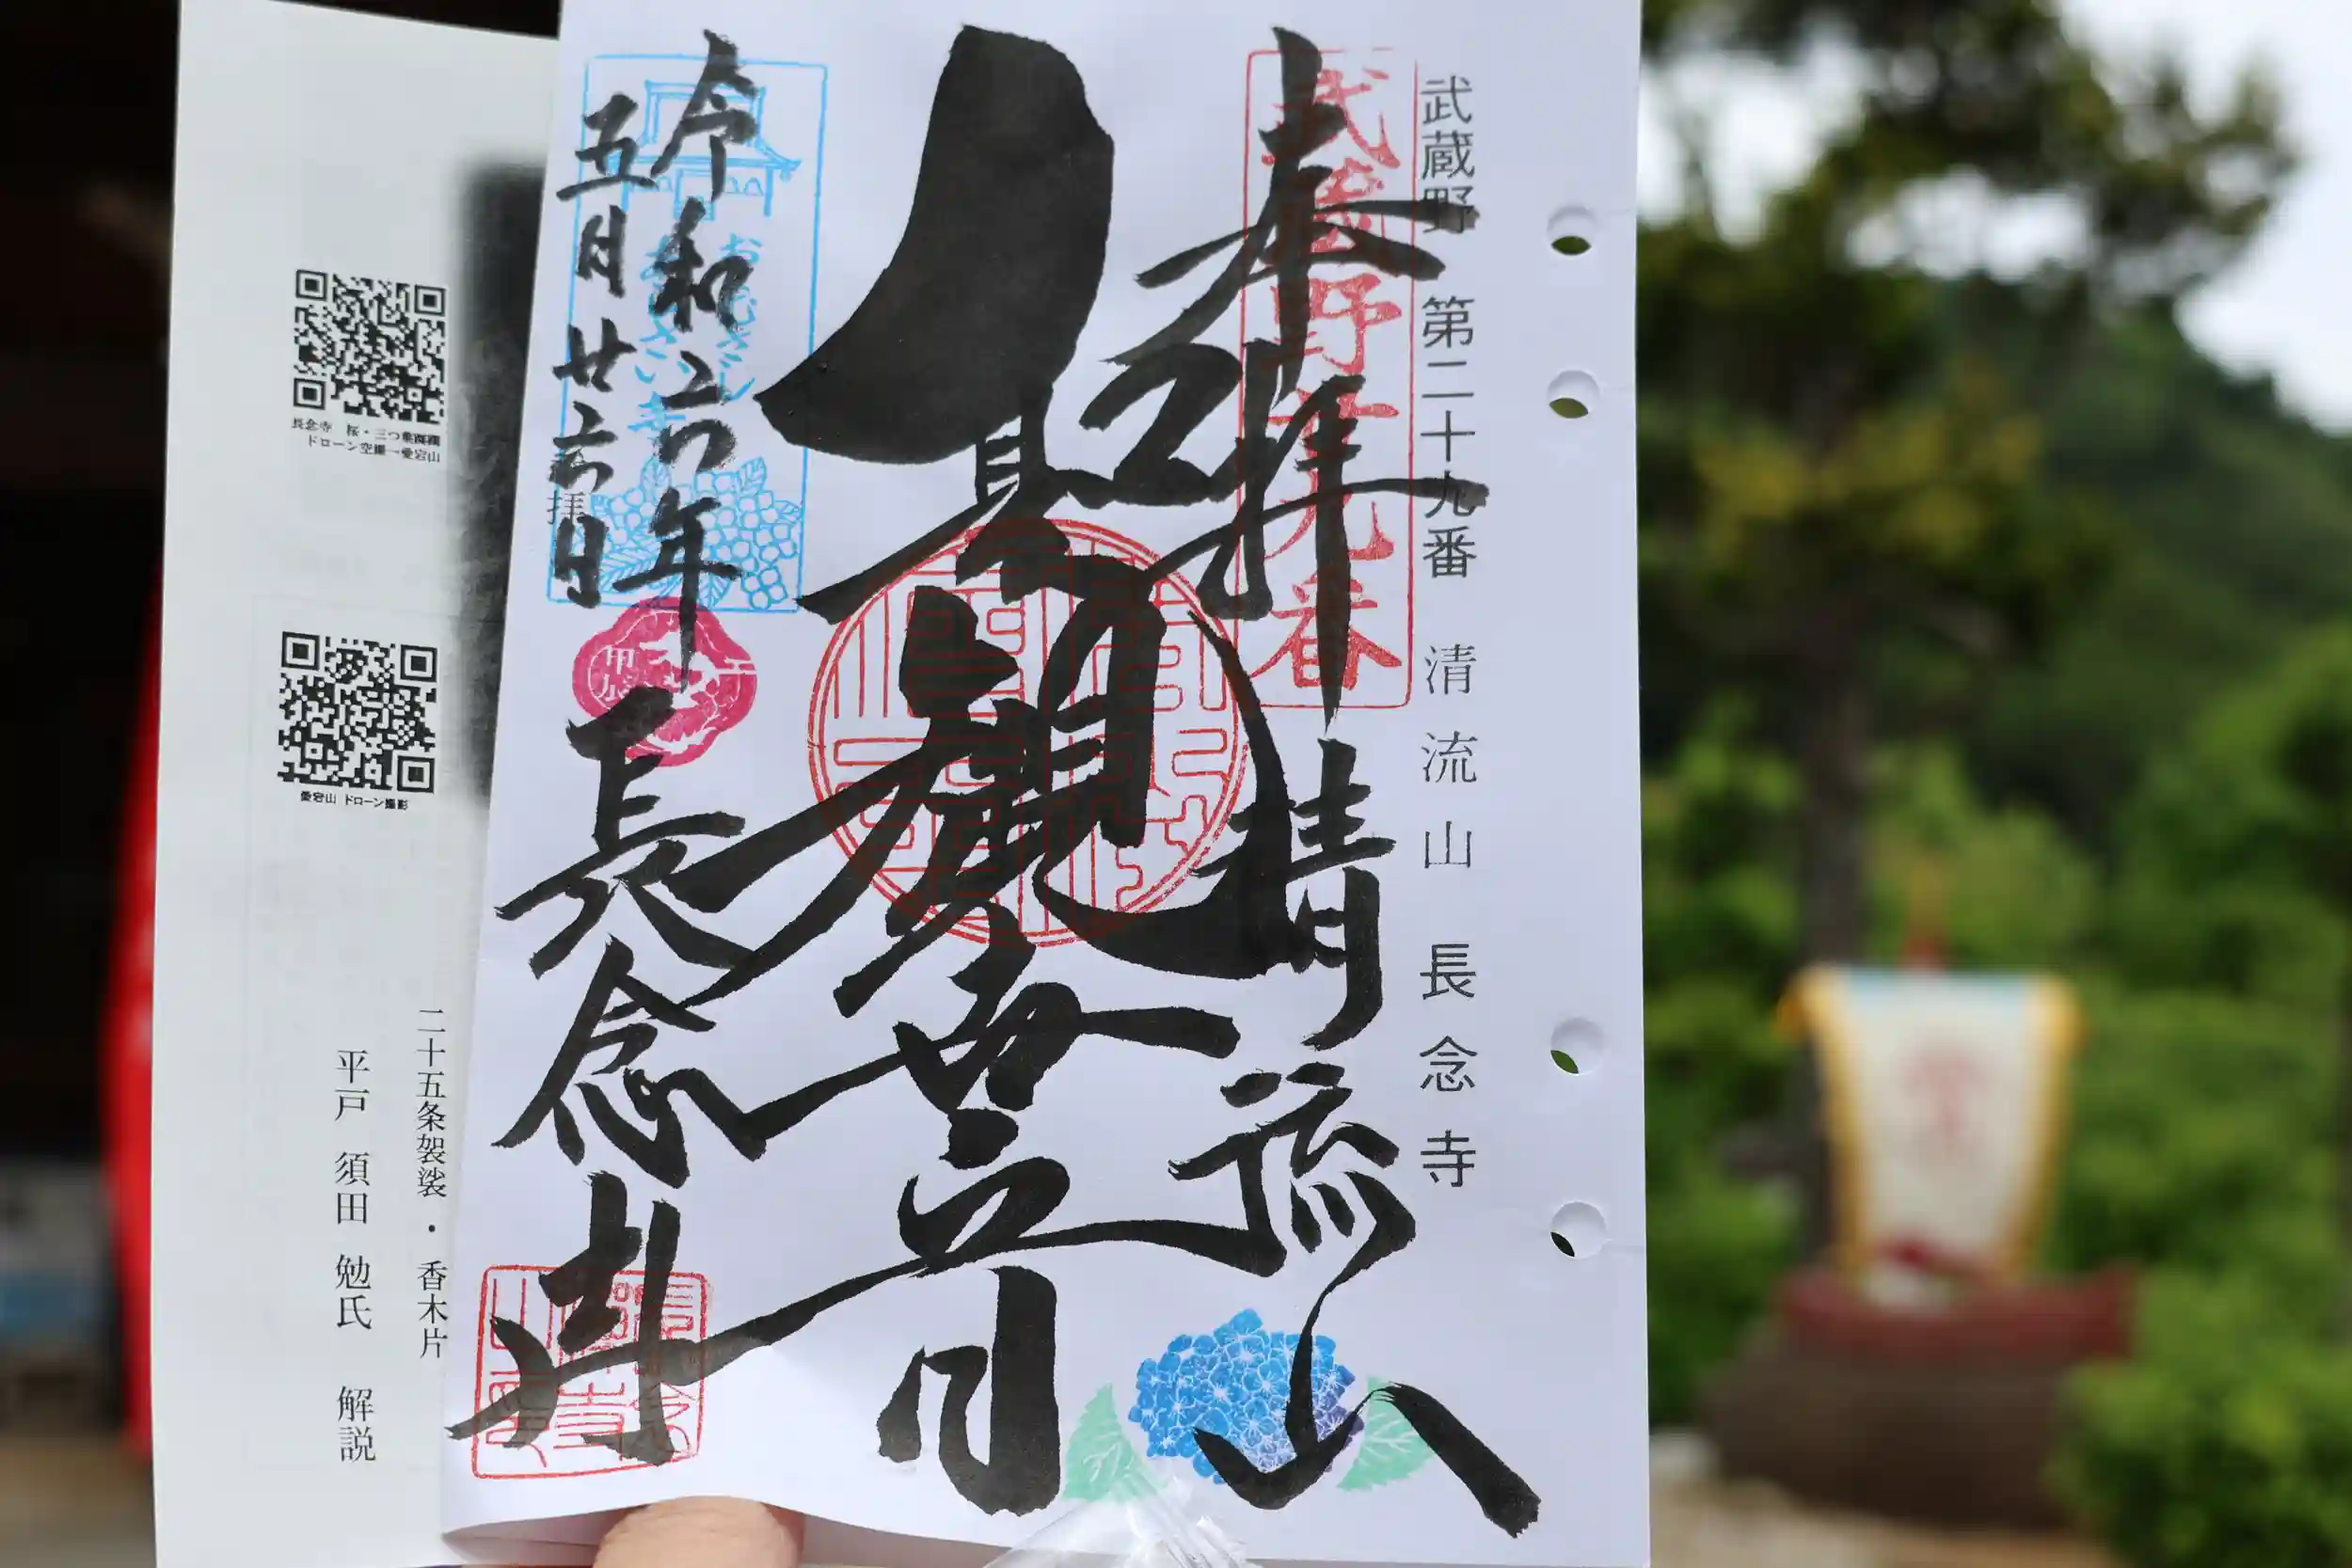 武蔵野 第二十九番 清流山 長念寺
武蔵野廿九番
奉拝 清流山
聖観世音
令和六年
五月廿六日
長念寺
拝
甲辰
長念寺 桜・三つ葉躑躅
ドローン空撮→愛宕山
愛宕山 ドローン撮影
二十五条袈裟・香木片
平戸 須田 勉氏 解説